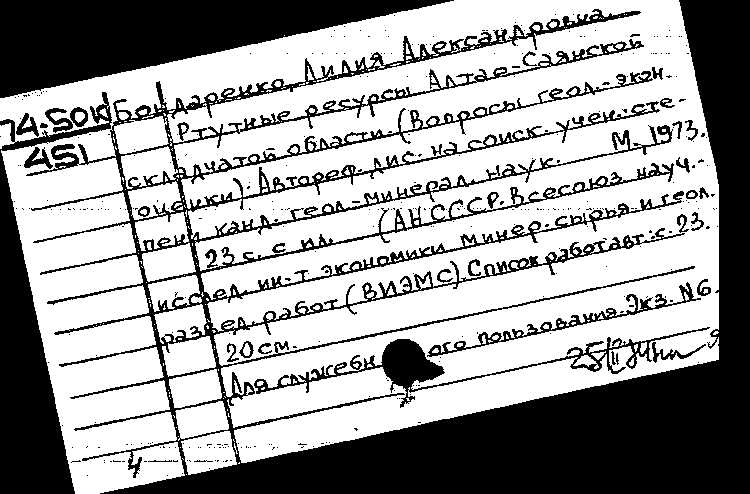 74.50К Бондаренко, Лилия Александровна.
451
Ртутные ресурсы Алтае-Саянской
складчатой области. (Вопросы геол.-экон.
оценки). Автореф. дис. на соиск. учен. сте-
пени канд. геол.-минерал. наук. М., 1973.
23 с. с ил. (АН СССР. Всесоюз науч.-
исслед. ин-т экономики минер. сырья и геол.
развед. работ (ВИЭМС). Список работ авт.: с. 23.
20 см.
Для служебного пользования. Экз. N6.
4